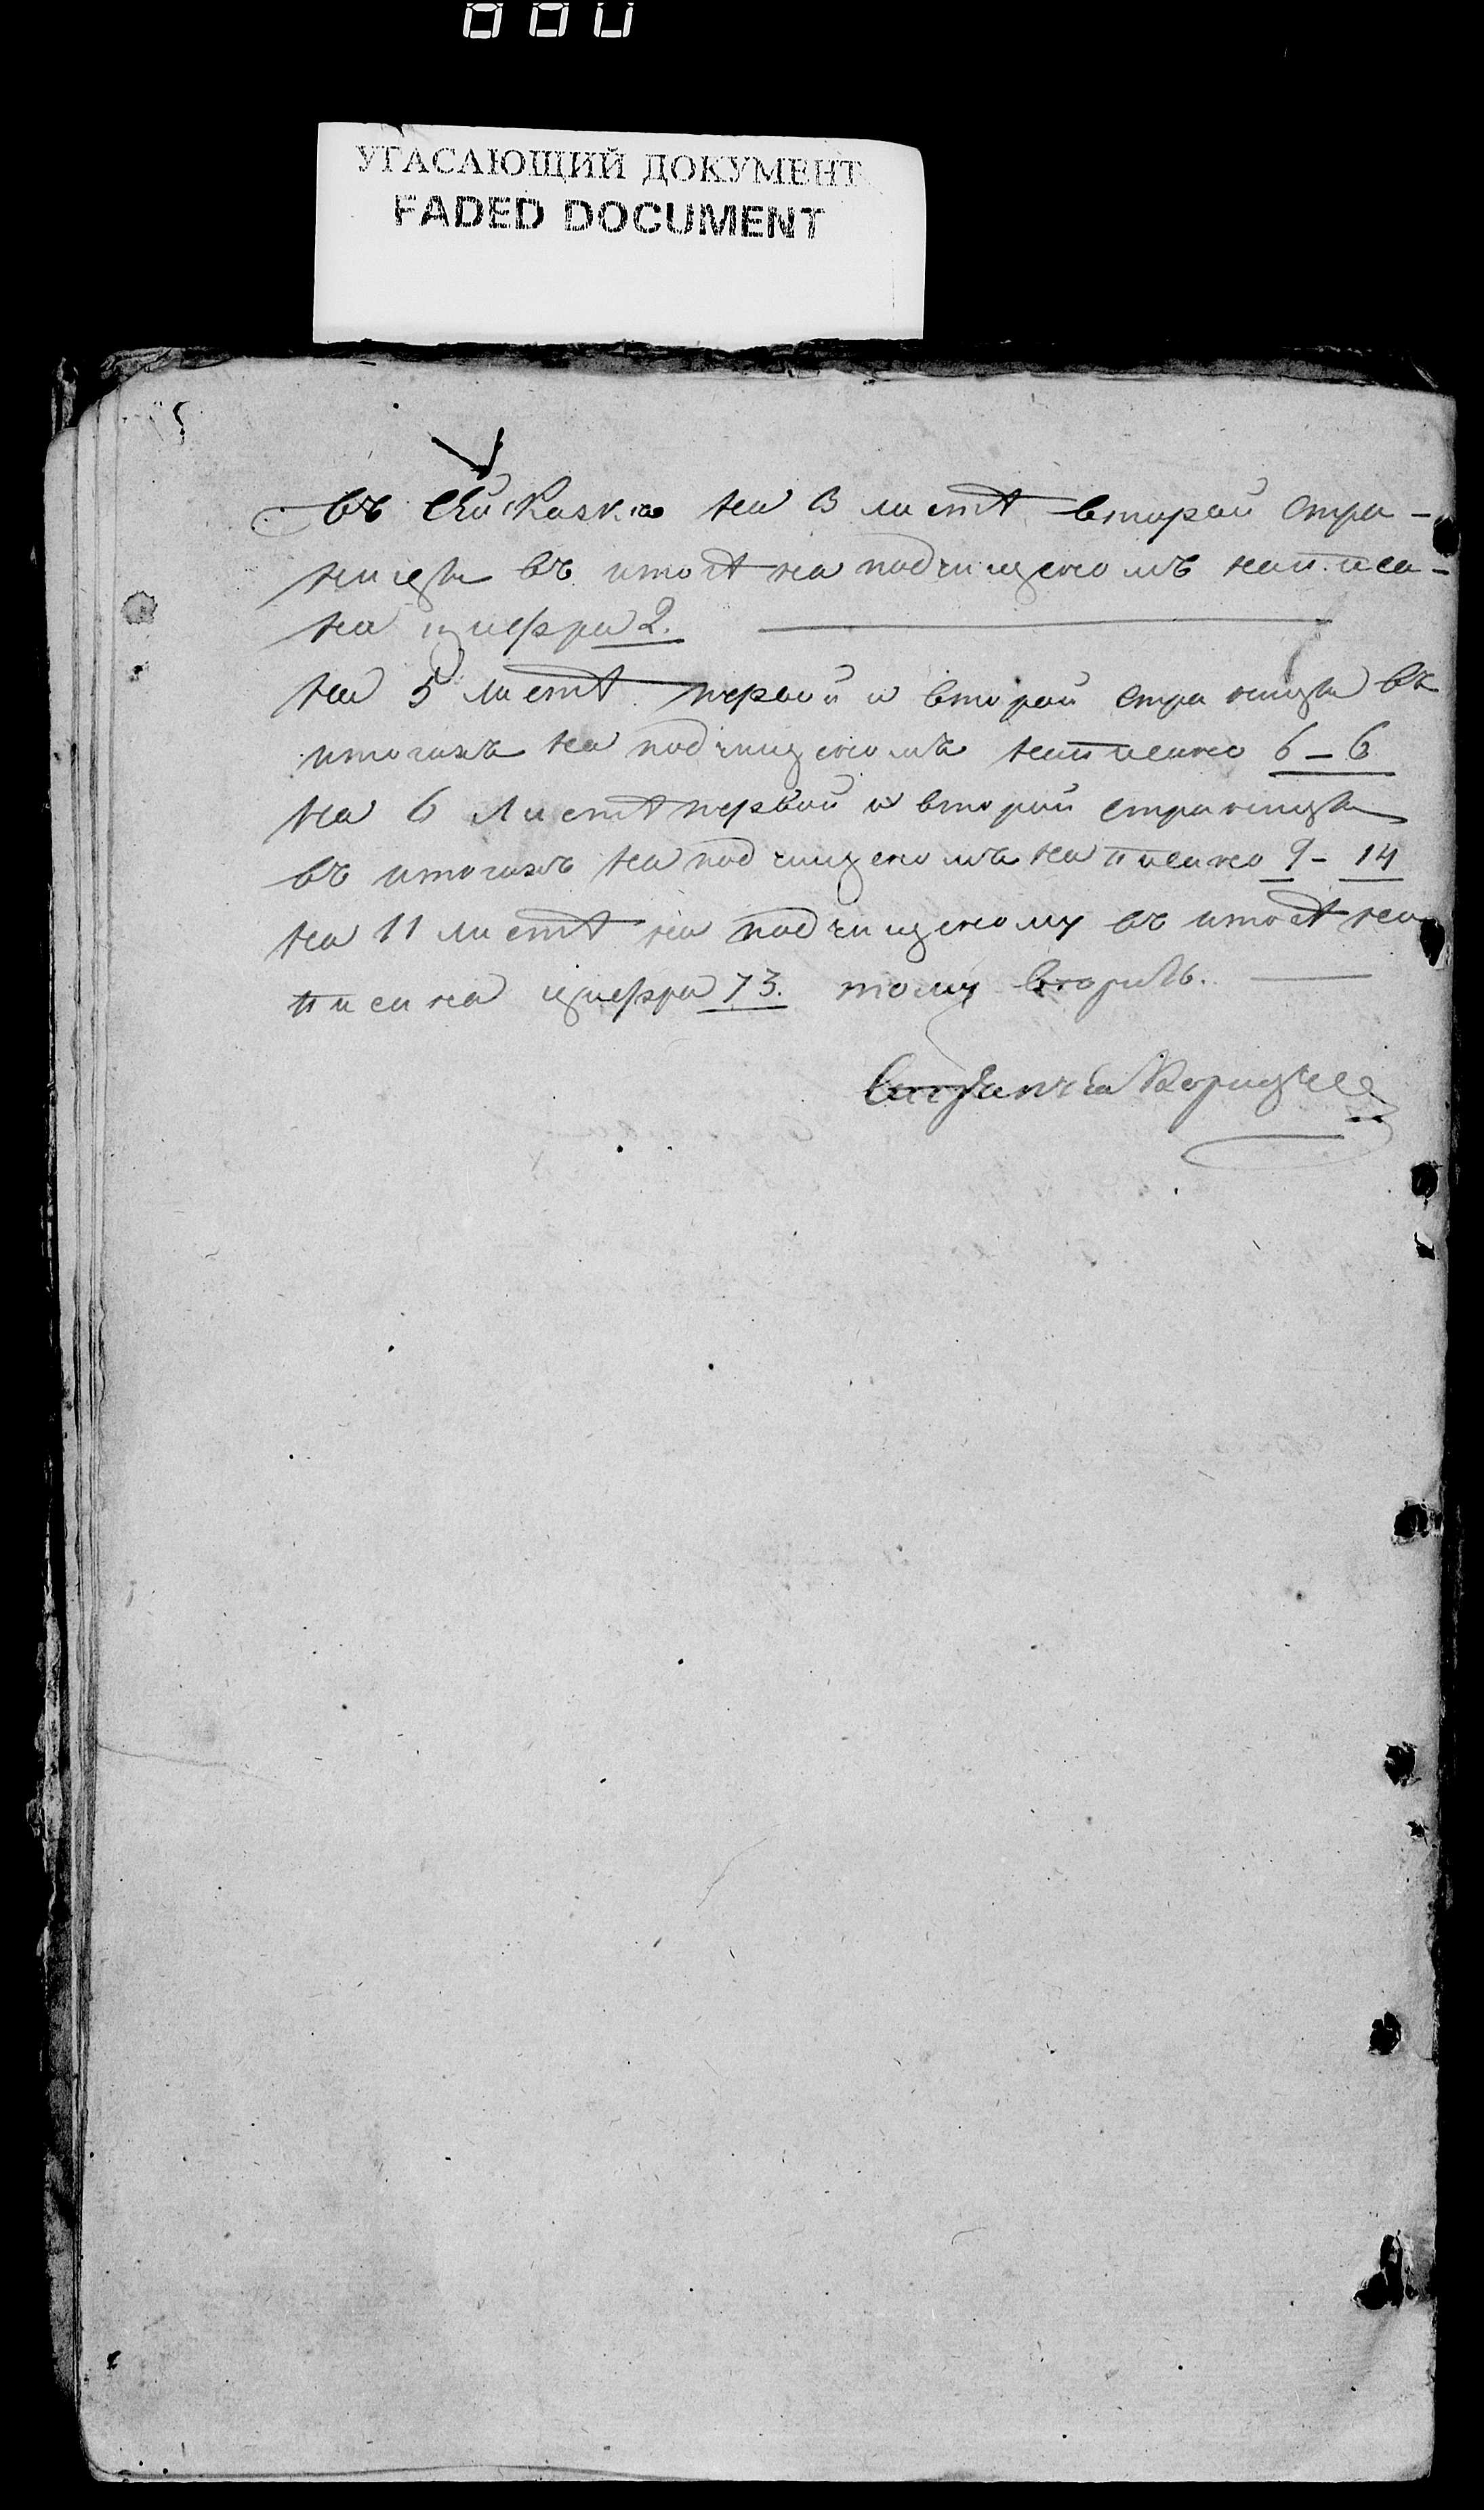 УГАСАЮЩИЙ ДОКУМЕНТ
FADED DOCUMENT
въ сей сказкѣ на 3 листѣ второй стра-
ницы въ итогѣ на подчищеномъ написа-
на цифра 2.
на 5 листѣ первой и второй страницы въ
итогахъ на подчищеномъ написано 6-6
на 6 листѣ первой и второй страницы
въ итогахъ на подчищеномъ написано 9-14
на 11 листѣ на подчищеному въ итогѣ на
писана цифра 73. тому вѣрить.